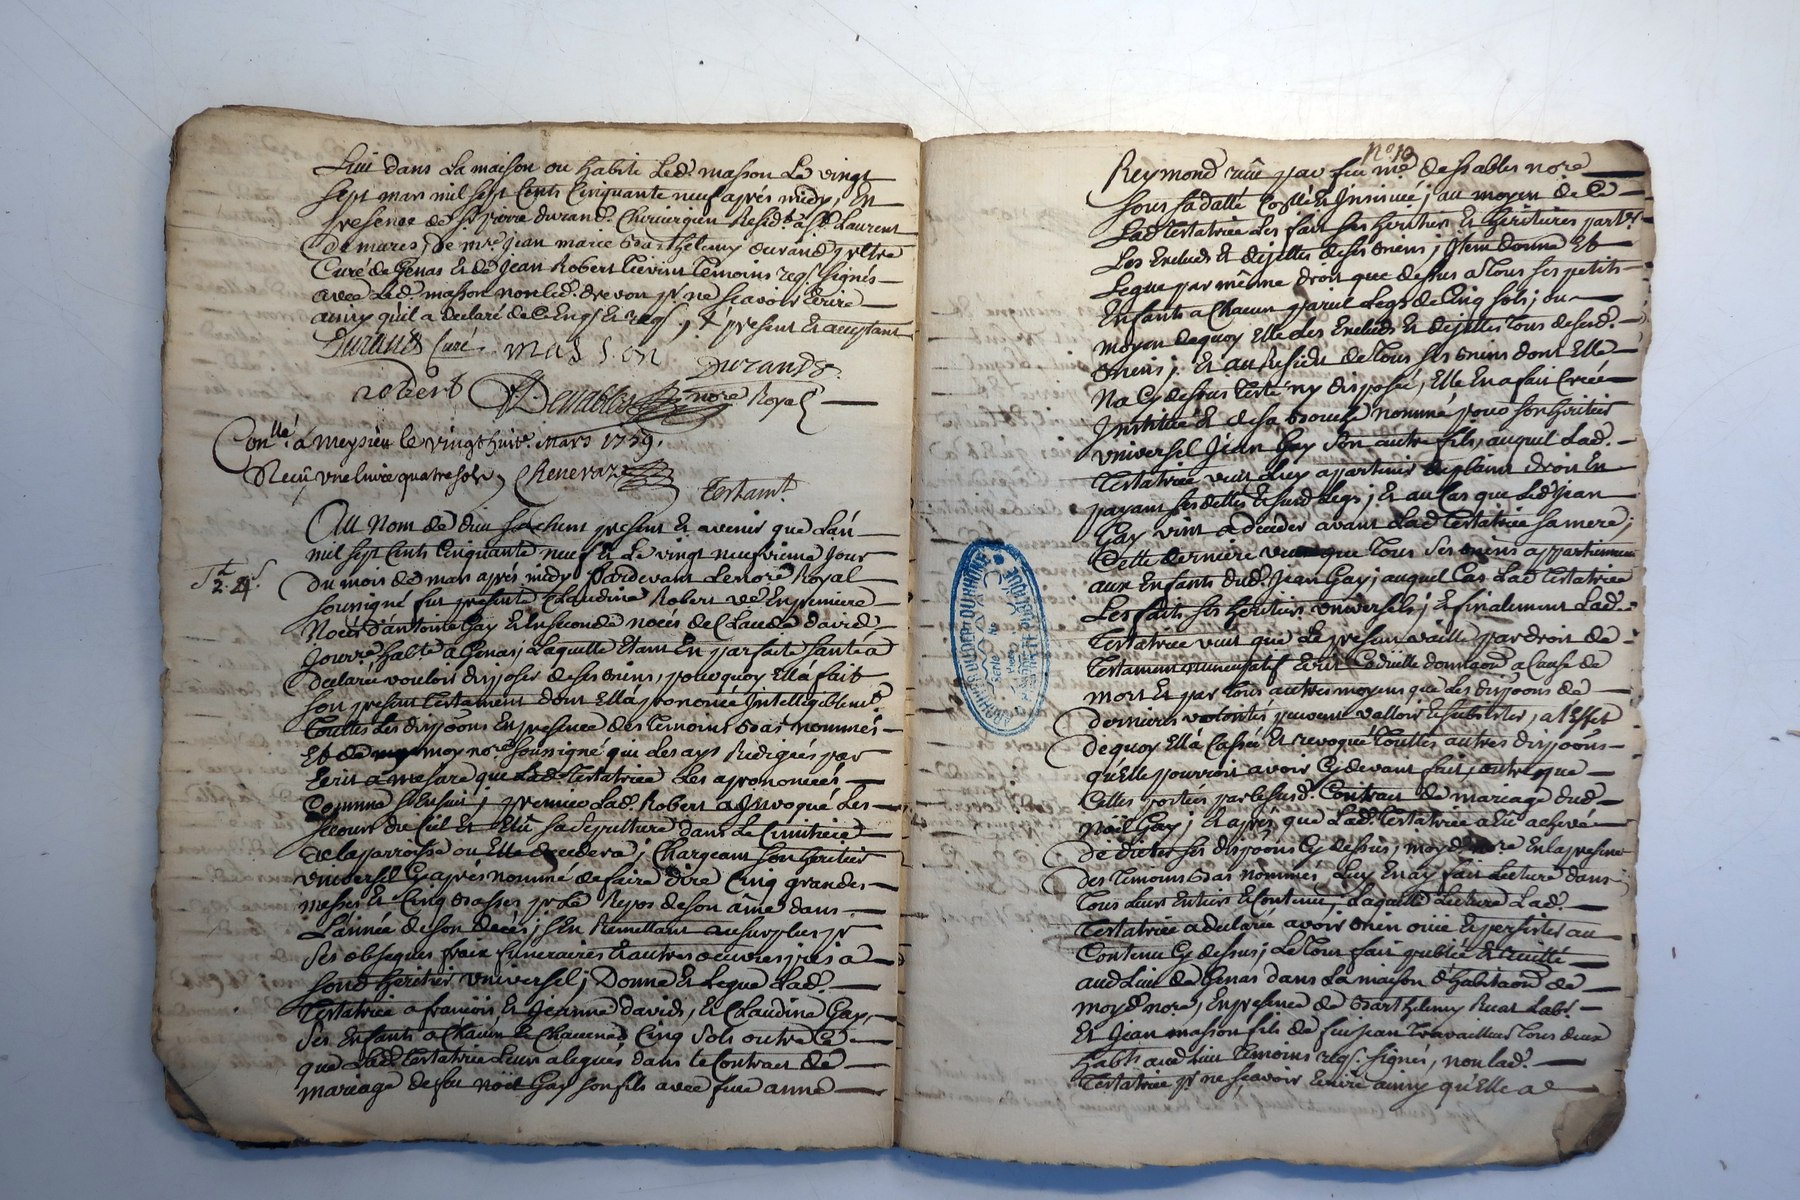 Lieu dans La maison ou habite Led. masson Le vingt
sept mars mil sept Cents Cinquante neuf après midy, En
presence de Sr. pierre durand Chirurgien Residt. a St. Laurent
de mures, de mre. jean marie Barthelemy durand prêtre
Curé de Genas Et de Jean Robert temoins reqs. signés
avec Led. masson non Led. drevon pr. ne sçavoir Ecrire
ainsy qu'il a declaré de Ce Enqs. Et reqs. present Et acceptant
Durand Curé masson
Durand
robert Desables nore Royal
Conllé. a meysieu le vingt huit. mars 1759.
Reçu une livre quatre sols Chenevaz
Testamt.
Au Nom de dieu sachent present Et avenir que L'an
mil sept Cents Cinquante neuf Et Le vingt neufvieme Jour
2. 4s.
du mois de mars après midy pardevant Le nore Royal
soussigné fut presente Claudine Robert ve. En premiere
Noces d'antoine Gay Et En seconde noces de Claude david
Jourre. habte. a Genas, Laquelle Etant En parfaite santé a
declaré vouloir disposer de ses Biens, pourquoy Ell'a fait
son present testament dont Ell'a prononcé Intelligiblemt.
touttes Les dispoons En presence des temoins Bas nommés
Et de moy nore soussigné qui Les ays Redigées par
Ecrit a mesure que Lad. testatrice Les a prononcées
Comme s'Ensuit; premier Lad. Robert a Invoqué Les
secours du Ciel Et Elû sa sepulture dans Le Cimitiere
de la parroisse ou Elle decedera; Chargeant son heritier
universel Cy après nommé de faire dire Cinq grandes
messes Et Cinq Basses pr. Le Repos de son âme dans
L'année de son decès; s'En Remettant au surplus pr.
ses obseques frais funeraires Et autres oeuvres pies a
sond. heritier universel; Donne Et Legue Lad.
testatrice a françois Et Jeanne david, Et Claudine Gay,
ses Enfants a Chacun Et Chacune Cinq sols outre Ce
que Lad. testatrice Leurs a legués dans le Contract de
mariage de feu noël Gay son fils avec feue anne
No. 10
Reymond reçu par feu me. desables nore
sous sa datte Conllé Et Insinué; au moyen de Ce
Lad. testatrice Les fait ses heritiers Et heritieres partes.
Les Exclud Et dejette de ses Biens; Item donne Et
Legue par même droit que dessus a tous ses petits
Enfants a Chacun pareil Legs de Cinq sols; au
moyen de quoy Elle Les Exclud Et dejette tous de sesd.
Biens; Et au Residu de tous ses Biens dont Elle
N'a Cy dessus testé ny disposé, Elle En a fait Créé
Institué Et de sa Bouche nommé pour son heritier
universel Jean Gay son autre fils, auquel Lad.
testatrice veut Luy appartenir de plein droit En
payant ses dettes Et susd. Legs; Et au Cas que Led. Jean
Gay vint a déceder avant Lad. testatrice sa mere;
Cette derniere veut que tous ses Biens appartiennent
aux Enfants dud. Jean Gay; auquel Cas Lad. testatrice
Les fait ses heritiers universels; Et finalement Lad.
testatrice veut que Le present vaille par droit de
testament nuncupatif Ecrit Codicille donnaon a Cause de
mort Et par tous autres moyens que Les dispoons de
dernieres volontés peuvent valloir Et subsister, a l'Effet
de quoy Ell'a Cassé Et revoqué touttes autres dispoons
qu'Elle pourroit avoir Cy devant fait, outre que
Celles portées par Le susd. Contract de mariage dud.
Noël Gay; Et après que Lad. testatrice a Eu achevé
de dicter ses dispoons Cy dessus, moyd. nore En la presence
des temoins Bas nommés Luy En ay fait Lecture dans
tous Leur Entier Et Contenu, Laquelle Lecture Lad.
testatrice a declaré avoir Bien ouïe Et persister au
Contenu Cy dessus; Le tout fait publié Et recitté
aud. Lieu de Genas dans La maison d'habitaon de
moyd. nore, En presence de Barthelemy Ruat Labr.
Et Jean masson fils de feu jean travailleur tous deux
habts. aud. Lieu temoins reqs. signés, non Lad.
testatrice pr. ne sçavoir Ecrire ainsy qu'Elle a